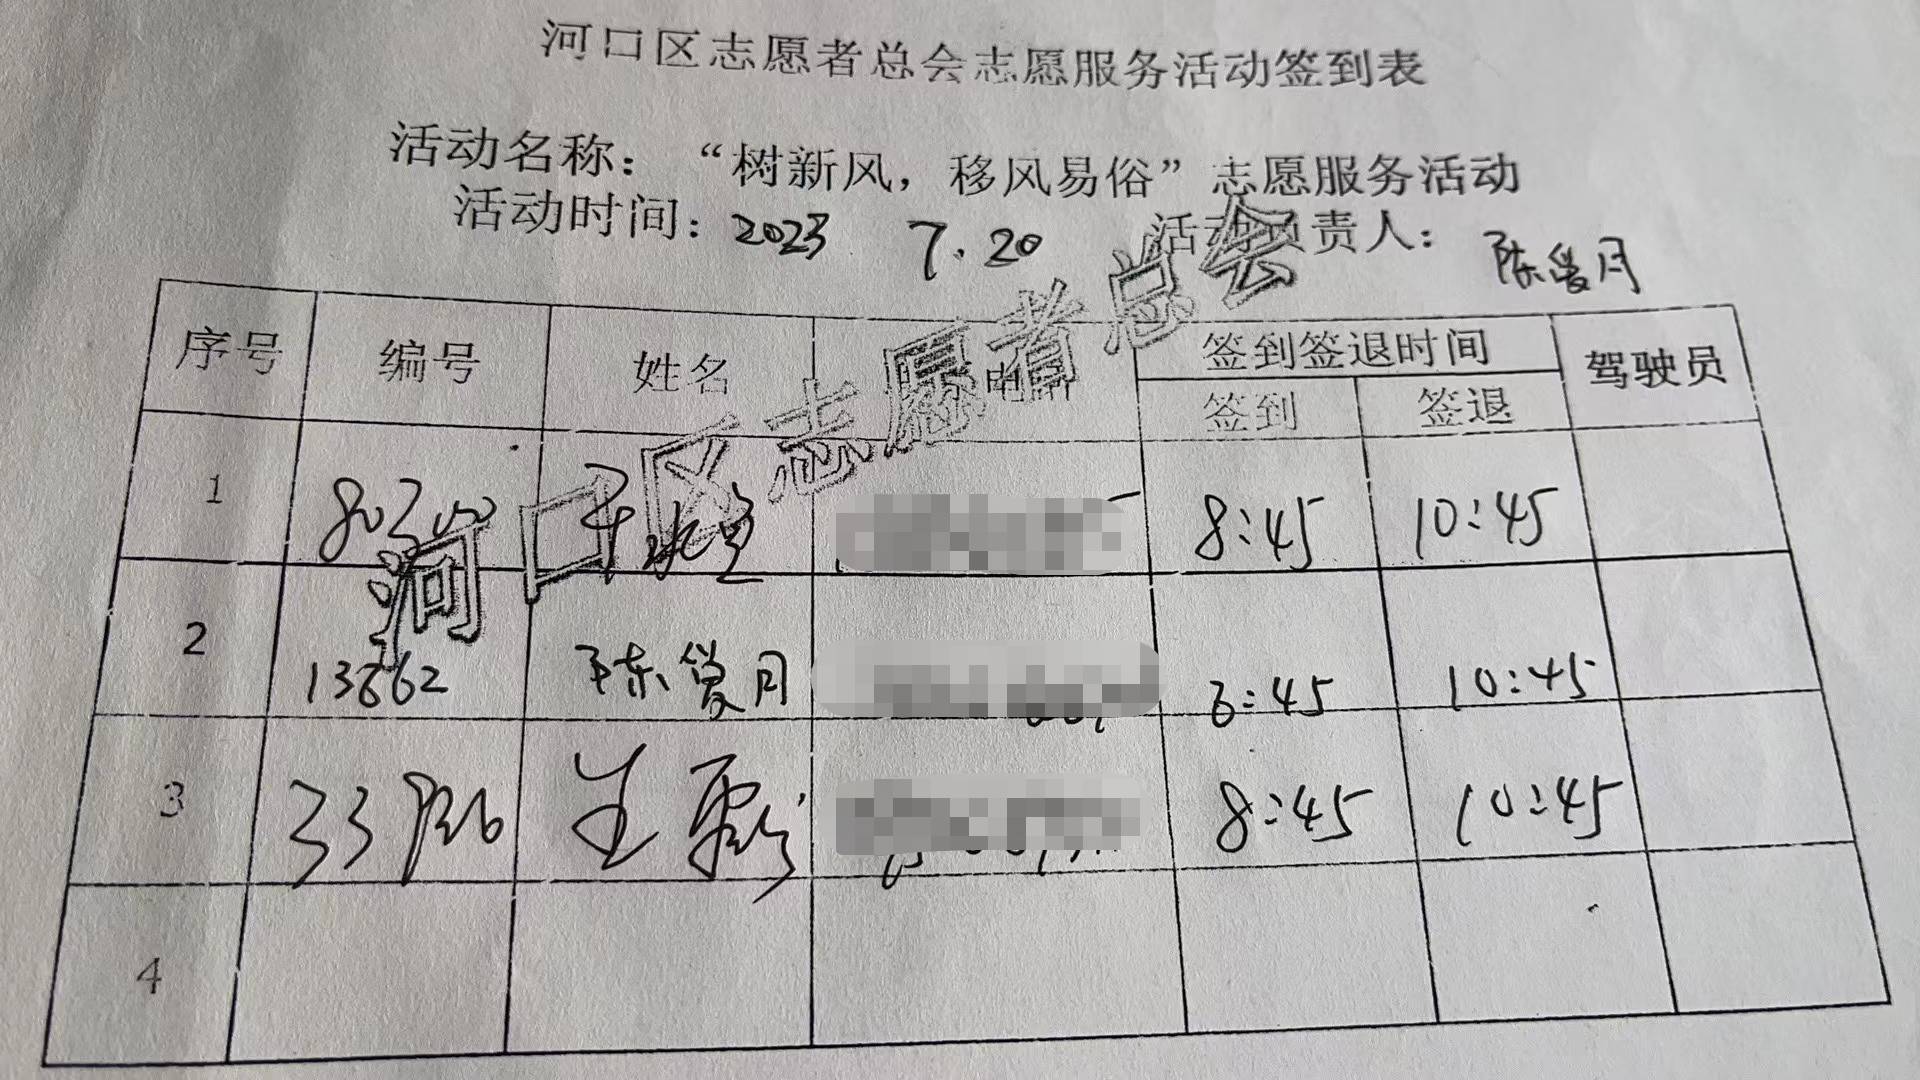 河口区志愿者总会志愿服务活动签到表
活动名称：“树新风，移风易俗”志愿服务活动
活动时间：2023 7.20 活动负责人：陈爱月
序号 编号 姓名 电话 签到签退时间 驾驶员
签到 签退
1 8:45 10:45
2 13862 陈爱月 8:45 10:45
3 王 8:45 10:45
4
河口区志愿者总会